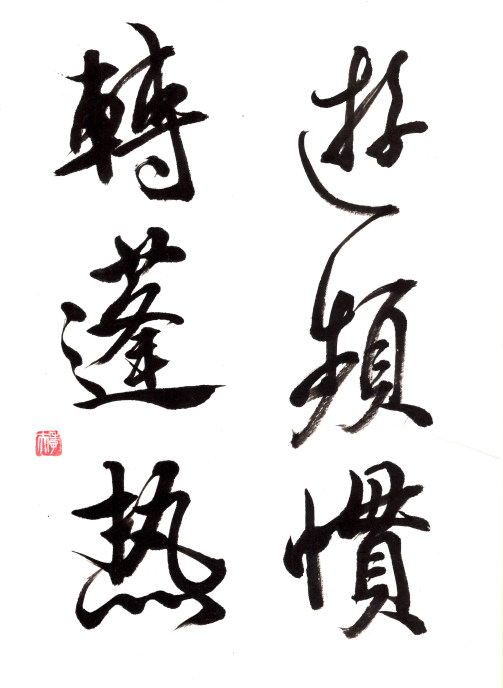 遊頻慣
轉蓬热